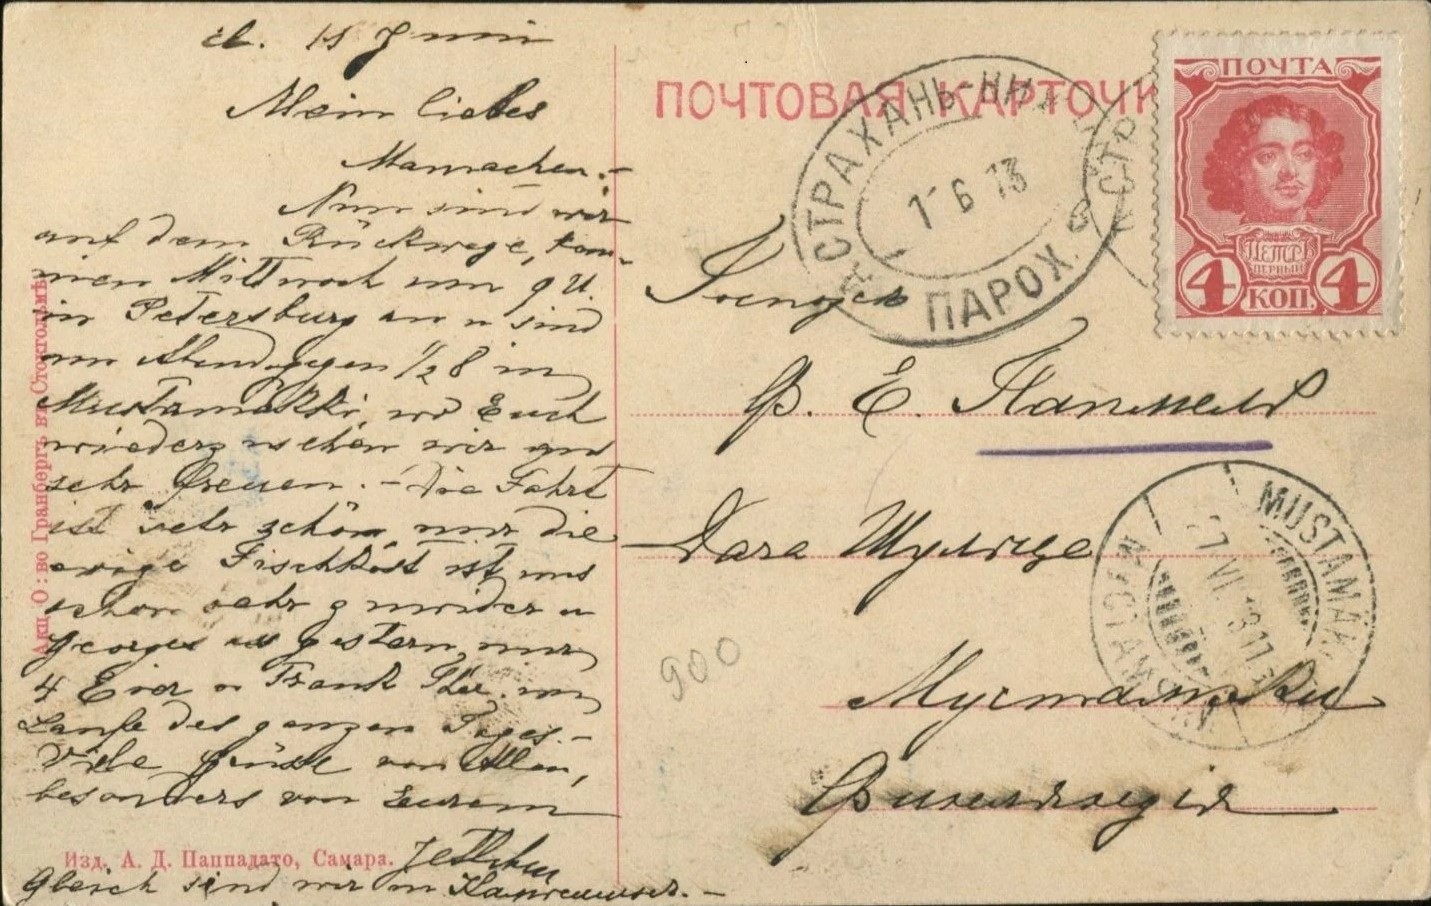 d. 15 Juni
Mein liebes
Mamachen. –
Nun sind wir
auf dem Rückwege, kom-
men Mittwoch um 9 U.
in Petersburg an u sind
um Abend gegen 1/2 8 in
Mustamäkki, wo Euch
wiederzusehen wir uns
sehr freuen. – Die Fahrt
ist sehr schön, nur die
ewige Fischkost ist uns
schon sehr zuwider u
Georges ass gestern nur
4 Eier u Trank Thee im
Laufe des ganzen Tages. –
Viele Grüsse von Allen,
besonders von Eurem
gleich sind wir in
Изд. А. Д. Паппадато, Самара.
Акц. О:во Гранбергъ въ Стокгольмѣ
ПОЧТОВАЯ КАРТОЧК
АСТРАХАНЬ-НИЖ
ПАРОХ.
6 13
ПОЧТА
ПЕТРЪ
ПЕРВЫЙ
4 КОП 4
Ф. Е. Паппмель
Дача Шульце
Мустамяки
Финляндія
MUSTAMÄKI
900